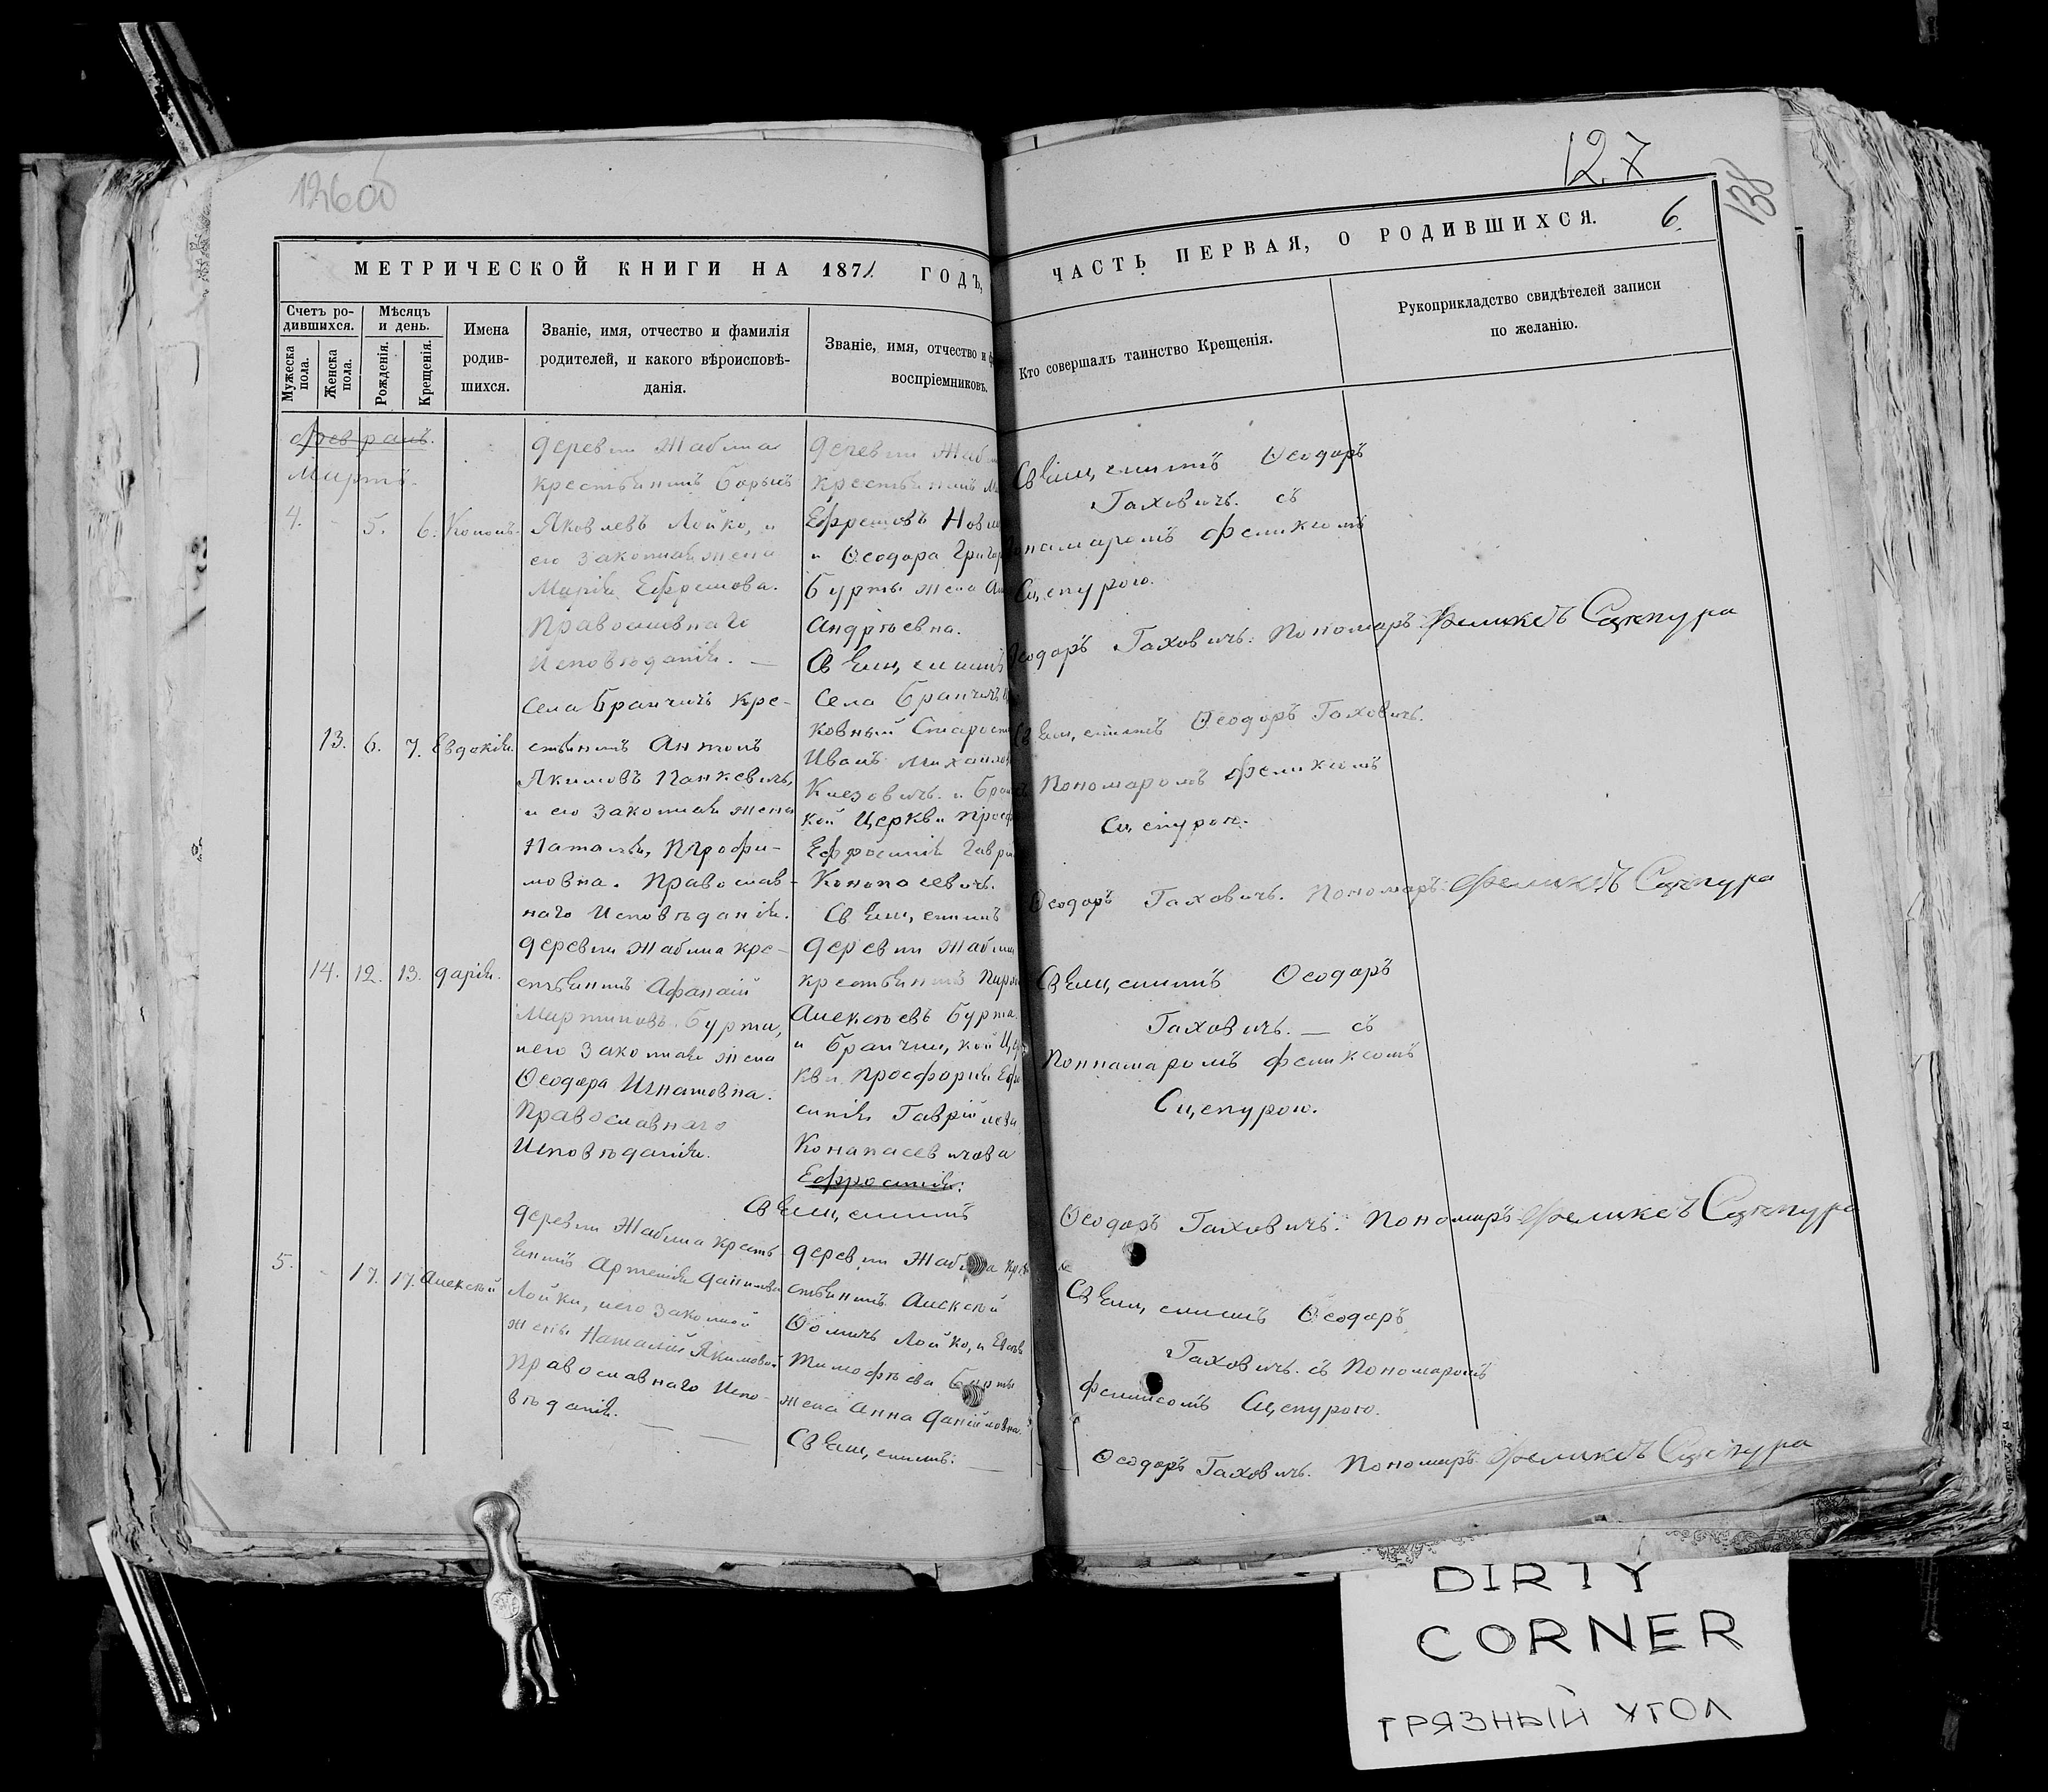 12600
127
138
6.
МЕТРИЧЕСКОЙ КНИГИ НА 1871 ГОДЪ,
ЧАСТЬ ПЕРВАЯ, О РОДИВШИХСЯ.
Счетъ родившихся.
Мужеска пола.
Женска пола.
Мѣсяцъ и день.
Рожденія.
Крещенія.
Имена
родив-
шихся.
Званіе, имя, отчество и фамилія
родителей, и какого вѣроисповѣ-
данія.
Званіе, имя, отчество и
воспріемниковъ.
Кто совершалъ таинство Крещенія.
Рукоприкладство свидѣтелей записи
по желанію.
Февраль.
Мартъ.
4. - 5. 6. Кононъ.
деревни Жабина
крестьянинъ Борисъ
Яковлевъ Лойко, и
его законная жена
Марія Ефремова.
Православнаго
Исповѣданія. —
деревни Жаб
крестьянинъ
Ефремовъ Нов
и Ѳеодора Григор
Бурты жена
Андрѣевна.
Священникъ
Священникъ Ѳеодоръ
Гаховичъ. съ
Пономаромъ Феликсомъ
Сцепурою.
Ѳеодоръ Гаховичъ. Пономаръ Феликсъ Сцепура
13. 6. 7. Евдокія.
Села Бранчичъ кре-
стьянинъ Антонъ
Якимовъ Панкевичъ,
и его законная жена
Наталія, Трофи-
мовна. Православ-
наго Исповѣданія.
Села Бранчичъ
ковный Старост
Иванъ Михайлов
Киезовичъ. и Бран
кой Церкви просф
Ефросинія Гаври
Конопасевичъ.
Священникъ
Священникъ Ѳеодоръ Гаховичъ.
Пономаромъ Феликсомъ
Сцепурою.
Ѳеодоръ Гаховичъ. Пономаръ Феликсъ Сцепура
14. 12. 13. дарія.
деревни Жабина кре-
стьянинъ Афанасій
Мартиновъ Бурта,
и его законная жена
Ѳеодора Игнатовна.
Православнаго
Исповѣданія.
деревни Жабин
крестьянинъ
Алексѣевъ Бурта.
и Бранчицкой Цер
кви Просфорня Ефро
синія Гаврійлева
Конапасевичова
Ефросинія.
Священникъ
Священникъ Ѳеодоръ
Гаховичъ. — съ
Поннамаромъ Феликсомъ
Сцепурою.
Ѳеодоръ Гаховичъ. Пономаръ Феликсъ Сцепура
5. - 17. 17. Алексѣй
деревни Жабина кресть
янинъ Артемія данилова
Лойки, и его законной
жены Наталіи Якимовой
Православнаго Испо-
вѣданія. — —
деревни Жабина кре
стьянинъ Алексѣй
Ѳомичъ Лойко, и
Тимофѣева Бурты
жена Анна Данійловна.
Священникъ. —
Священникъ Ѳеодоръ
Гаховичъ. съ Пономаромъ
Феликсомъ Сцепурою.
Ѳеодоръ Гаховичъ. Пономаръ Феликсъ Сцепура
DIRTY
CORNER
ГРЯЗНЫЙ УГОЛ